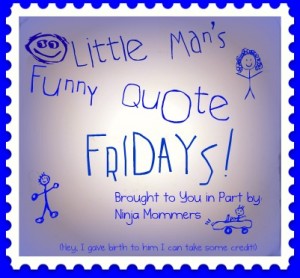 Little Man's
Funny Quote
FRIDAYS!
Brought to You in Part by:
Ninja Mommers
(Hey, I gave birth to him I can take some credit!)